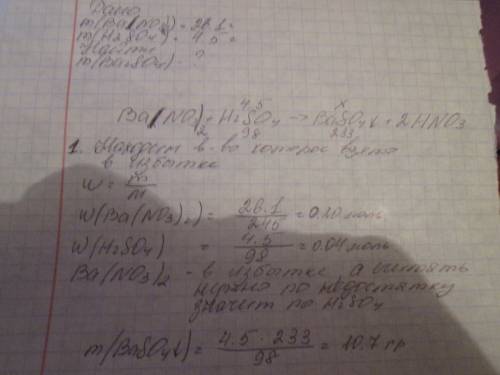 Дано
m(Ba(NO3)2 = 26.1 г
m(H2SO4) = 4.5 г
Найти
m(BaSO4) - ?
4,5 x
Ba(NO3)2 + H2SO4 → BaSO4↓ + 2HNO3
98 233
1. Находим в-во которое взято
в избытке
w = m/M
w(Ba(NO3)2) = 26.1/246 = 0.10 моль
w(H2SO4) = 4.5/98 = 0.04 моль
Ba(NO3)2 - в избытке, а считать
нужно по недостатку
значит по H2SO4
m(BaSO4↓) = 4.5 · 233/98 = 10.7 гр